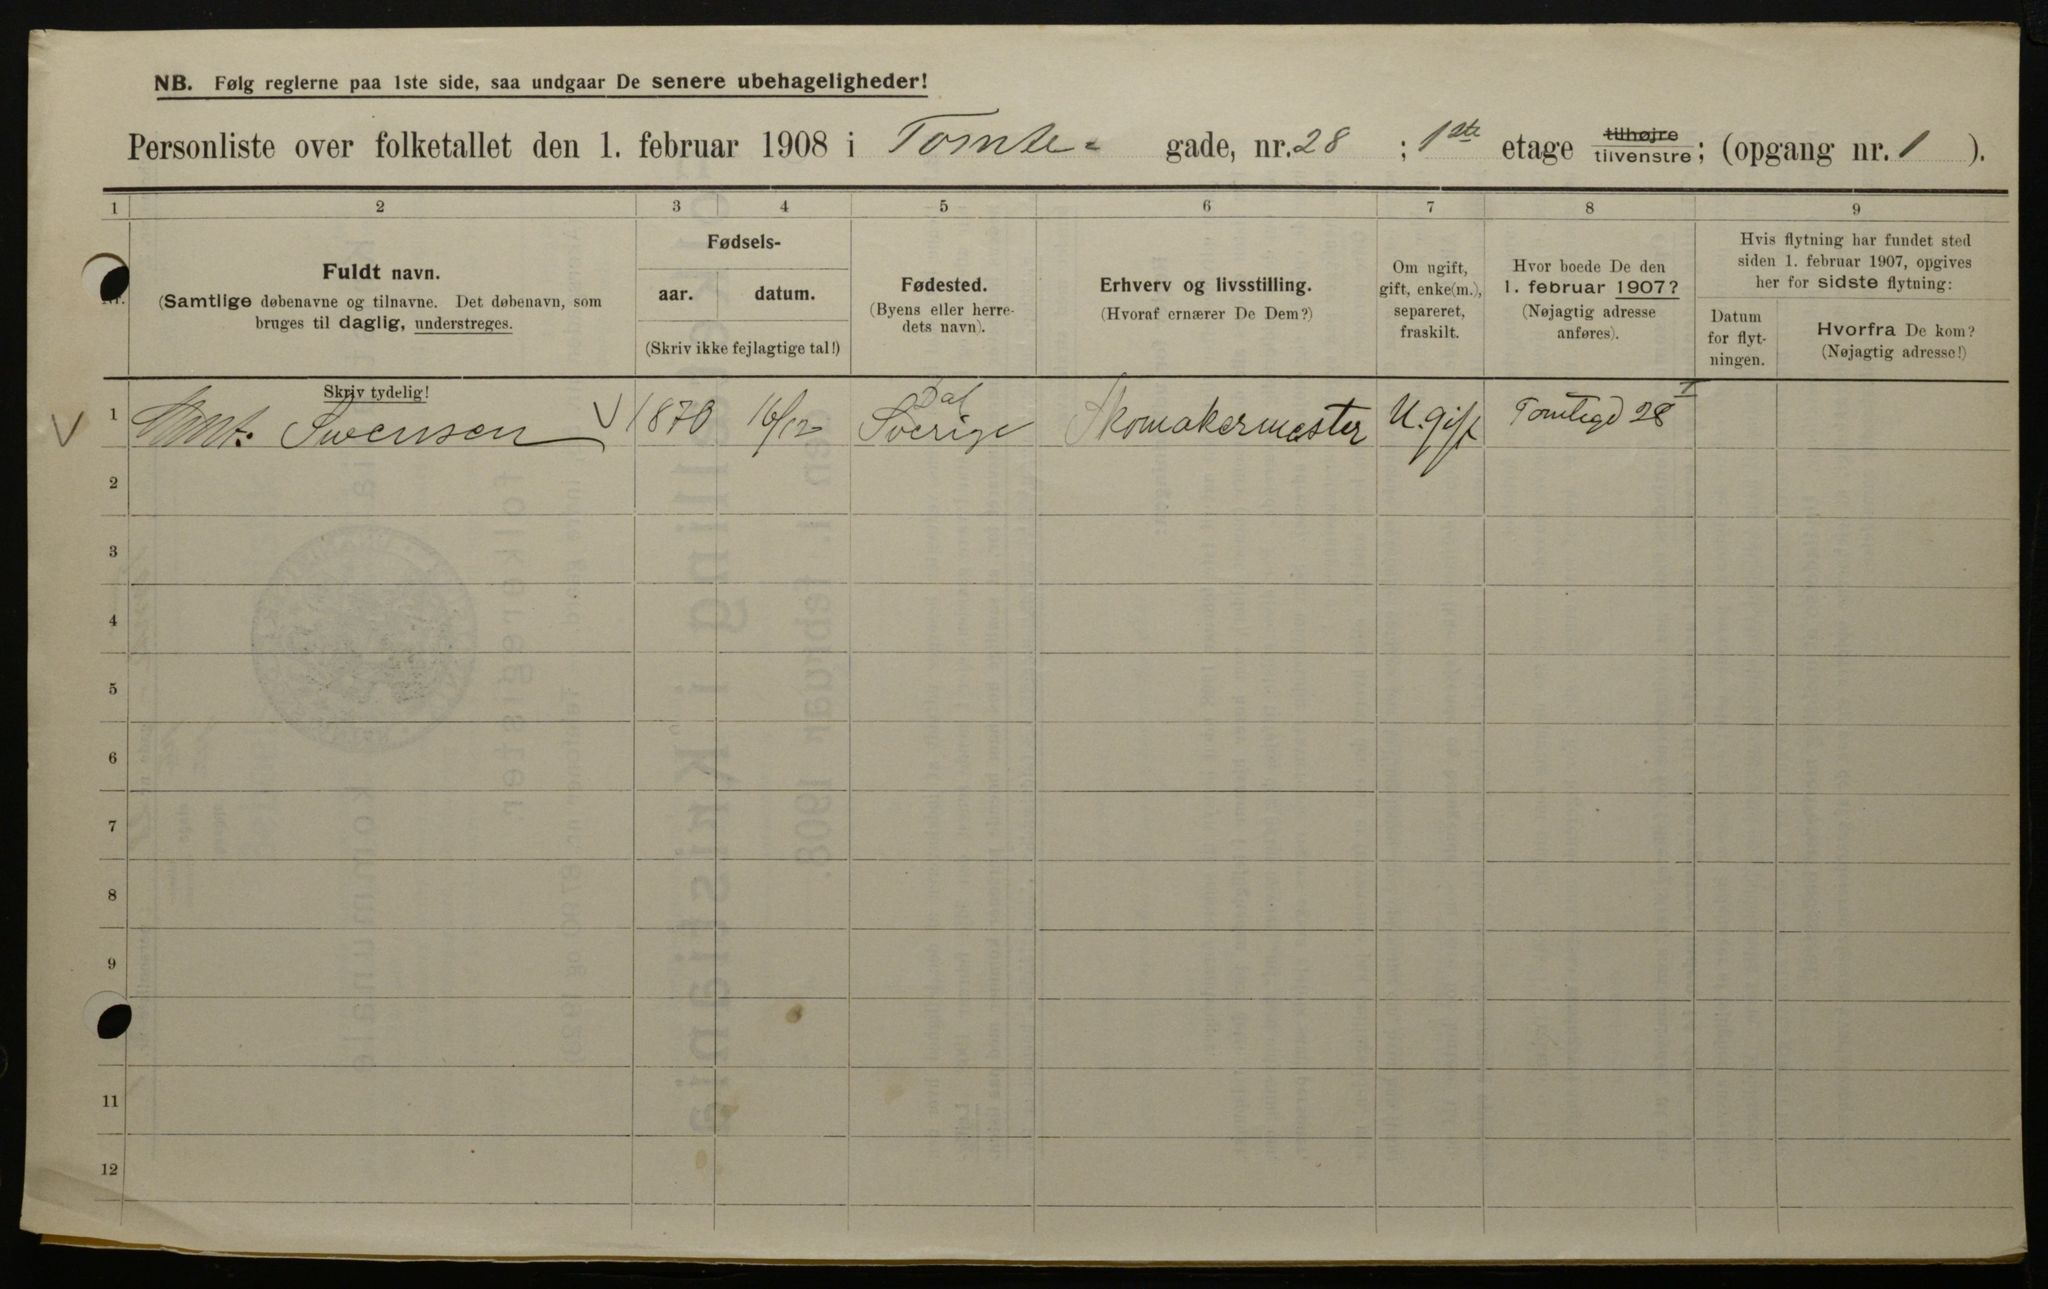 NB. Følg reglerne paa 1ste side, saa undgaar De senere ubehageligheder!
Personliste over folketallet den 1. februar 1908 i Tomte- gade, nr. 28 ; 1ste etage tilhøjre tilvenstre; (opgang nr. 1 ).
1 2 3 4 5 6 7 8 9
Nr.
Fuldt navn.
(Samtlige døbenavne og tilnavne. Det døbenavn, som
bruges til daglig, understreges.
Fødsels-
aar. datum.
(Skriv ikke fejlagtige tal!)
Fødested.
(Byens eller herre-
dets navn).
Erhverv og livsstilling.
(Hvoraf ernærer De Dem?)
Om ugift,
gift, enke(m.),
separeret,
fraskilt.
Hvor boede De den
1. februar 1907?
(Nøjagtig adresse
anføres).
Hvis flytning har fundet sted
siden 1. februar 1907, opgives
her for sidste flytning:
Datum
for flyt-
ningen.
Hvorfra De kom?
(Nøjagtig adresse!)
Skriv tydelig!
1 Swensen 1870 16/12 Dal Sverige Skomakermester U.gift Tomtegd 28 I
2
3
4
5
6
7
8
9
11
12